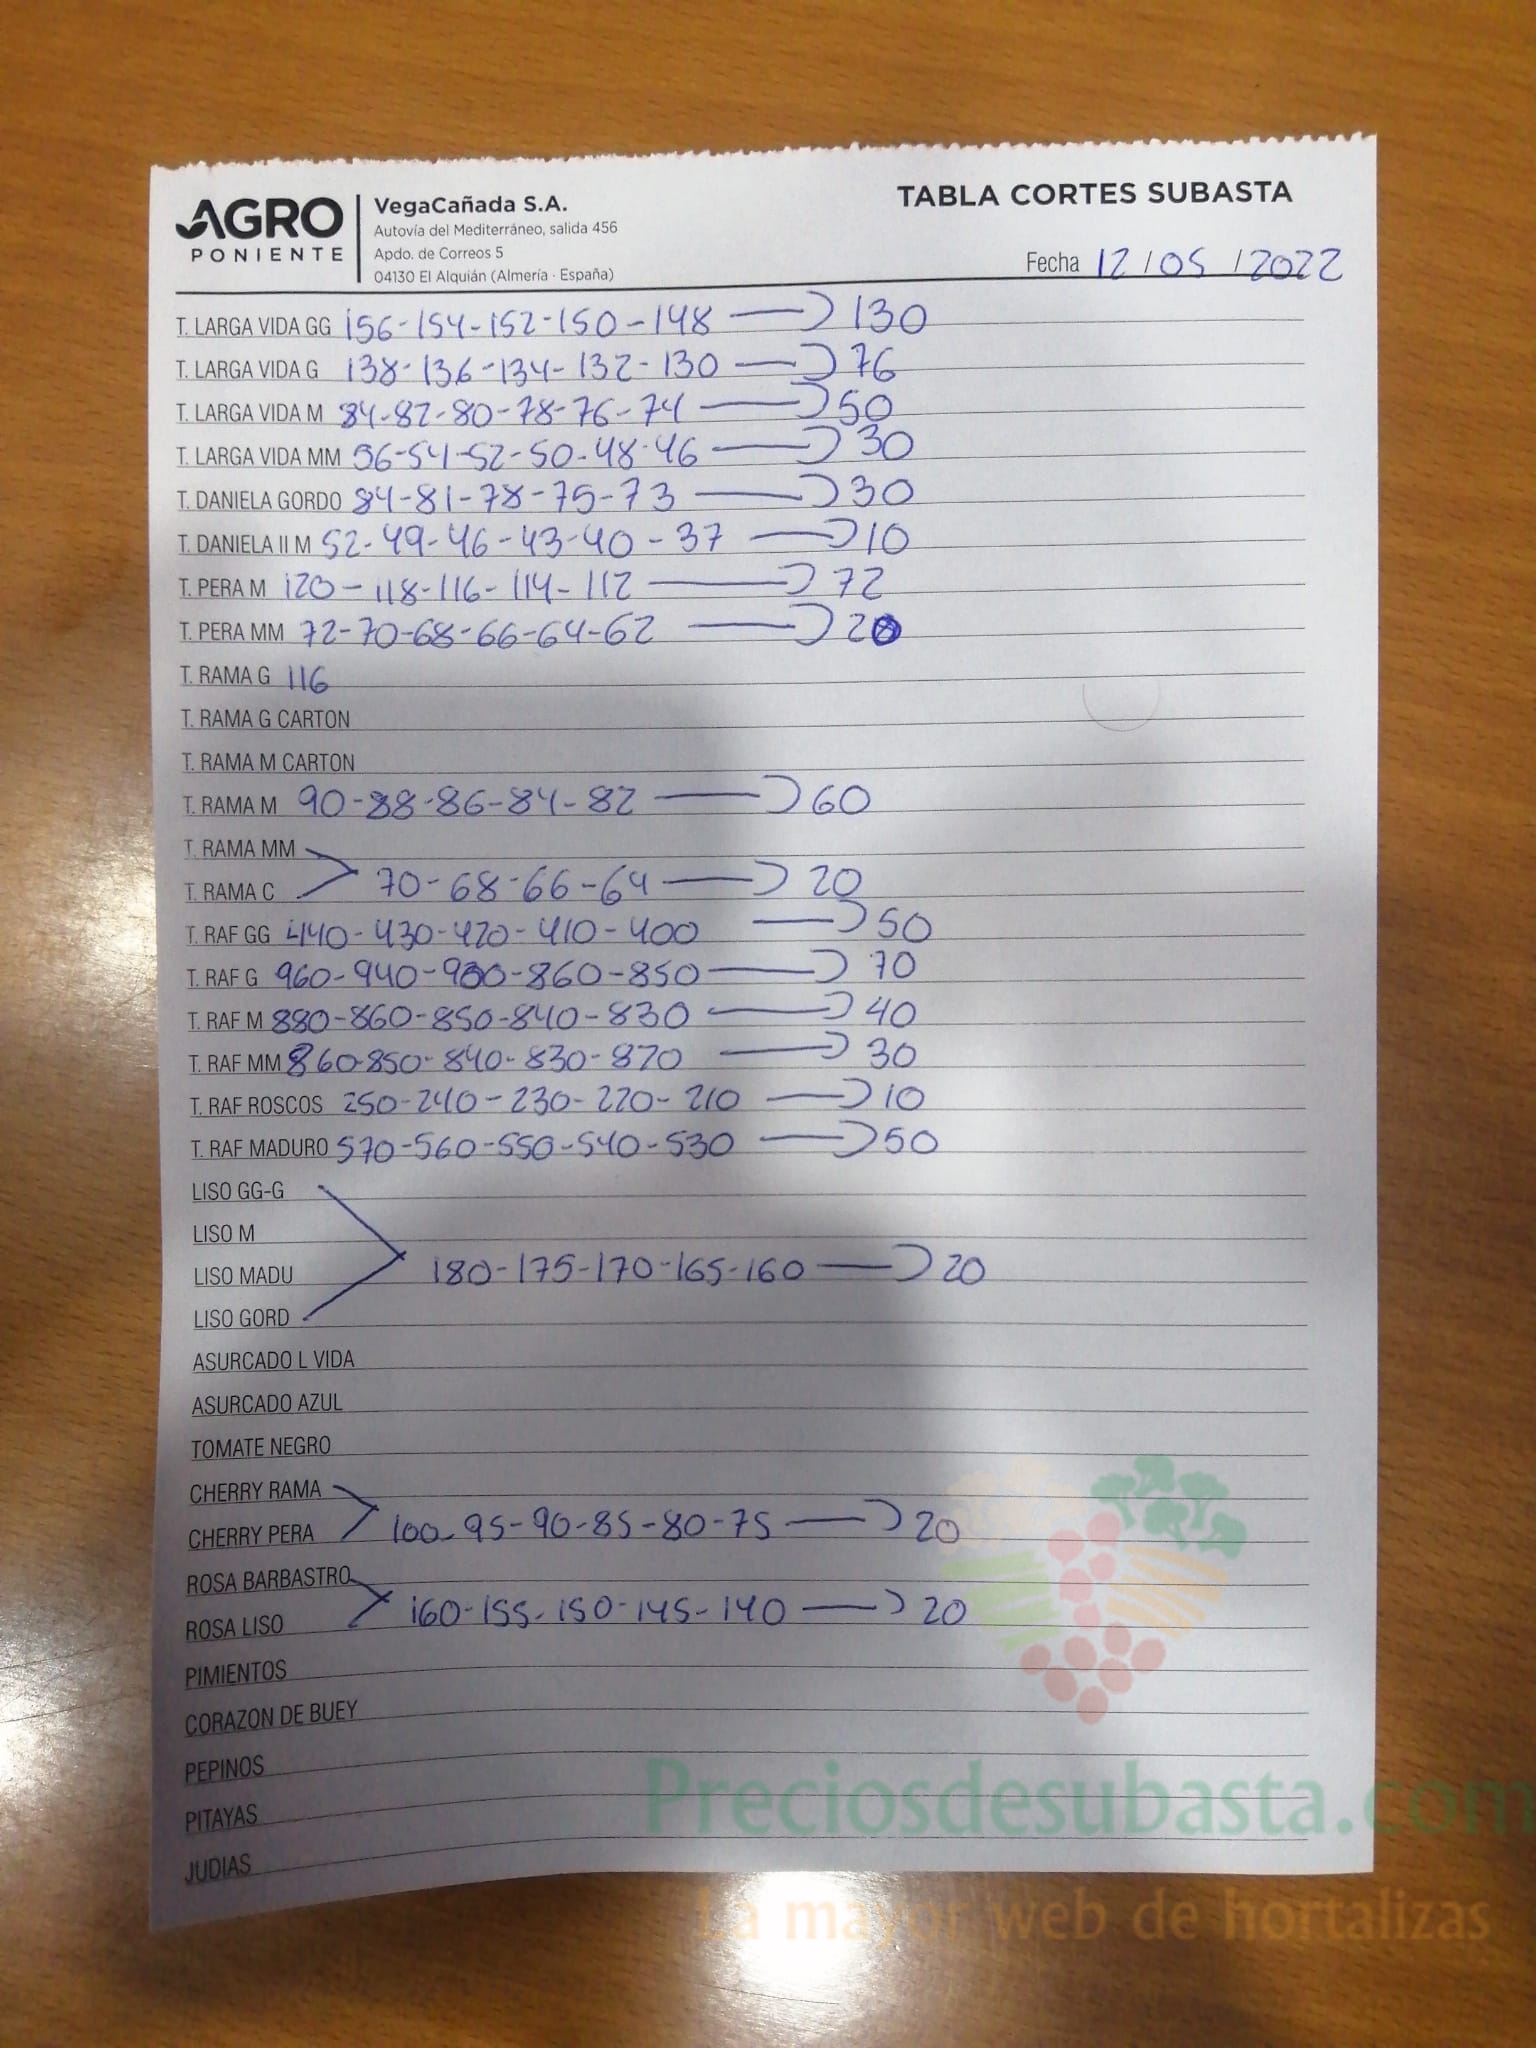 AGRO
PONIENTE
VegaCañada S.A.
Autovía del Mediterráneo, salida 456
Apdo. de Correos 5
04130 El Alquián (Almería · España)
TABLA CORTES SUBASTA
Fecha 12/05/2022
T. LARGA VIDA GG 156-154-152-150-148 130
T. LARGA VIDA G 138-136-134-132-130 76
T. LARGA VIDA M 84-82-80-78-76-74 50
T. LARGA VIDA MM 56-54-52-50-48-46 30
T. DANIELA GORDO 84-81-78-75-73 30
T. DANIELA II M 52-49-46-43-40-37 10
T. PERA M 120-118-116-114-112 72
T. PERA MM 72-70-68-66-64-62 20
T. RAMA G 116
T. RAMA G CARTON
T. RAMA M CARTON
T. RAMA M 90-88-86-84-82 60
T. RAMA MM
T. RAMA C 70-68-66-64 20
T. RAF GG 440-430-420-410-400 50
T. RAF G 960-940-900-860-850 70
T. RAF M 880-860-850-840-830 40
T. RAF MM 860-850-840-830-820 30
T. RAF ROSCOS 250-240-230-220-210 10
T. RAF MADURO 570-560-550-540-530 50
LISO GG-G
LISO M
LISO MADU 180-175-170-165-160 20
LISO GORD
ASURCADO L VIDA
ASURCADO AZUL
TOMATE NEGRO
CHERRY RAMA
CHERRY PERA 100-95-90-85-80-75 20
ROSA BARBASTRO
ROSA LISO 160-155-150-145-140 20
PIMIENTOS
CORAZON DE BUEY
PEPINOS
PITAYAS
JUDIAS
Preciosdesubasta.com
La mayor web de hortalizas